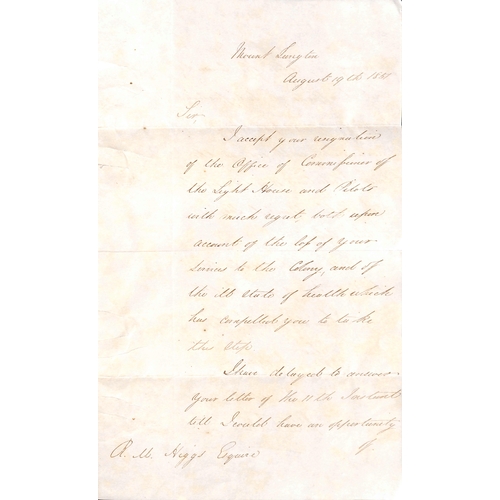 Mount Langton
August 19th 1851
Sir
I accept your resignation
of the Office of Commissioner of
the Light House and Pilots
with much regret, both upon
account of the loss of your
services to the Colony, and of
the ill state of health which
has compelled you to take
this step.
I have delayed to answer
your letter of the 11th Instant
till I could have an opportunity
of
R. M. Higgs Esquire